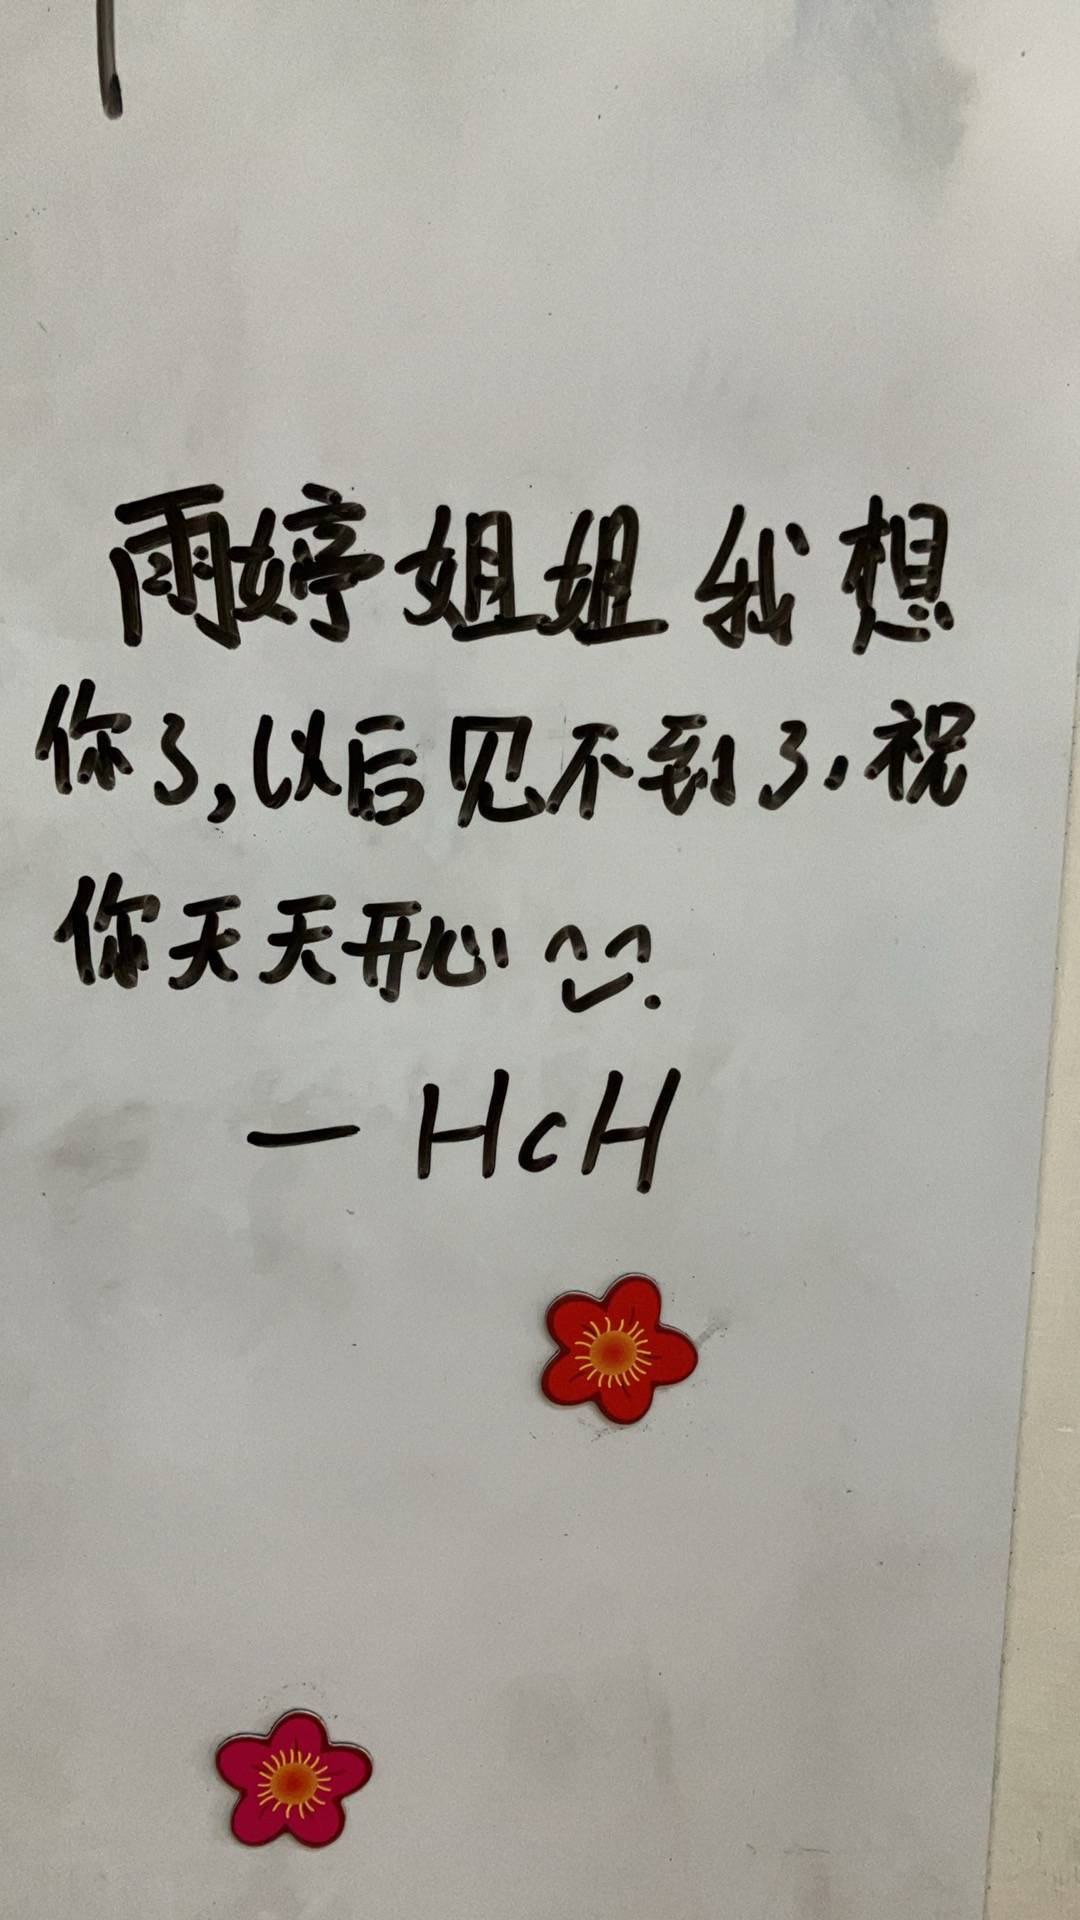 雨婷姐姐我想
你了,以后见不到了,祝
你天天开心 ^^.
— HcH